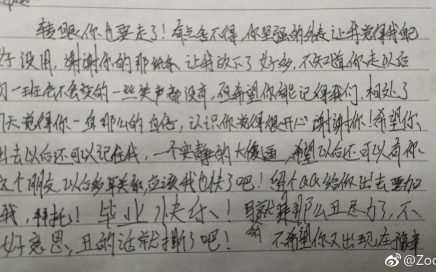 转眼你也要走了！有点舍不得，你坚强的外表让我觉得我
好没用，谢谢你的那 让我放下了好多，不知道你走以后
一班会不会 的一些笑声都没有，但希望你能记得我们，相处了
天觉得你一 那么的 ，认识你觉得很开心谢谢你！希望你，
出去以后还可以记住我，一 的大傻逼，希望以后还可以有你
这个朋友，以后 联系 应该我也快了吧！留个QQ给你出去要加
我，拜托！毕业快乐、！ 那么丑尽力了，不
好意思、丑的话就撕了吧！ 不希望你又出现在
@Zoo